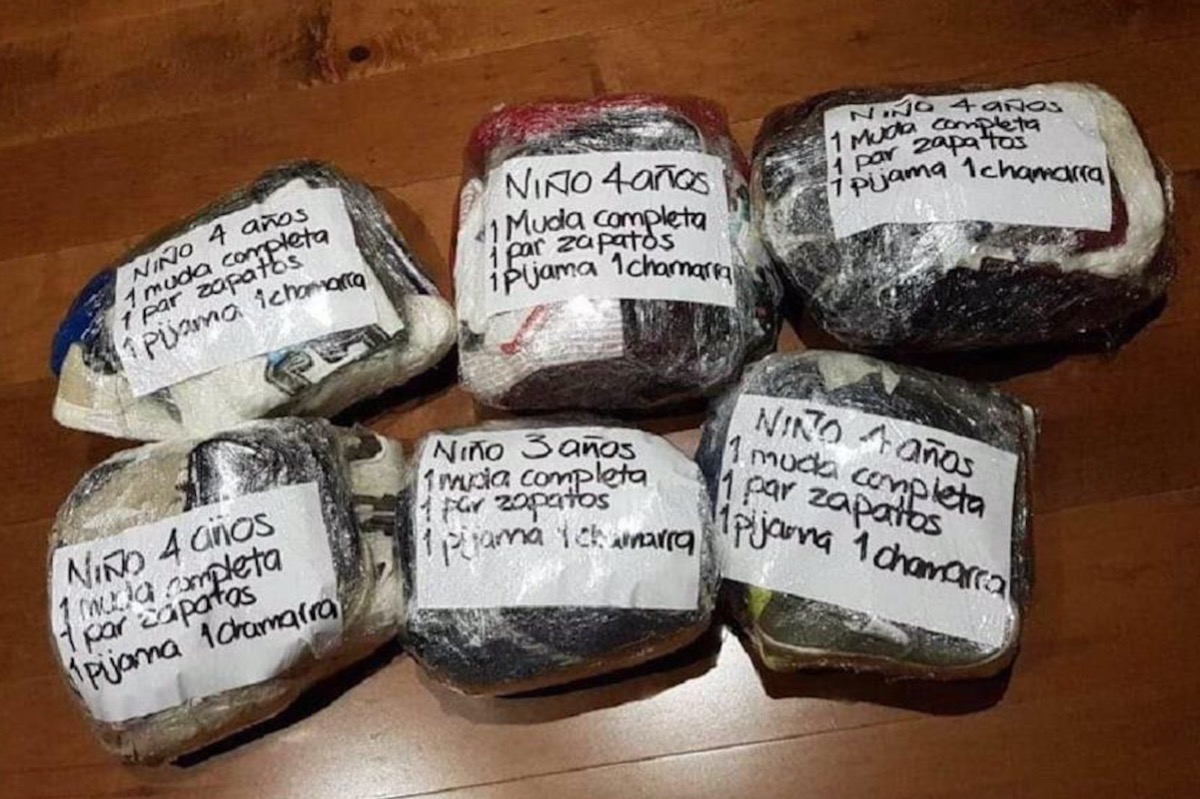 NIÑO 4 años
1 muda completa
1 par zapatos
1 pijama 1 chamarra
NIÑO 4 años
1 Muda completa
1 par zapatos
1 pijama 1 chamarra
NIÑO 4 años
1 Muda completa
1 par zapatos
1 pijama 1 chamarra
NIÑO 4 años
1 muda completa
1 par zapatos
1 pijama 1 chamarra
NIÑO 3 años
1 muda completa
1 par zapatos
1 pijama 1 chamarra
NIÑO 4 años
1 muda completa
1 par zapatos
1 pijama 1 chamarra